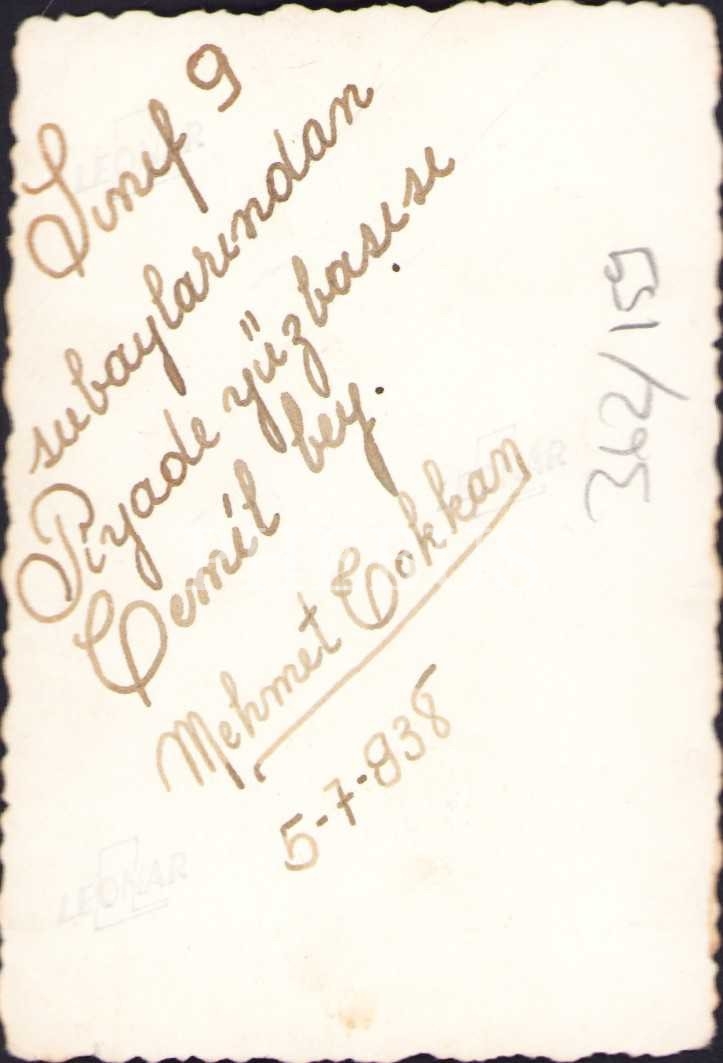 Sınıf 9
subaylarından
Piyade yüzbaşısı
Cemil bey.
Mehmet Cokkan
5-7-938
362/159
LEONAR
LEONAR
LEONAR